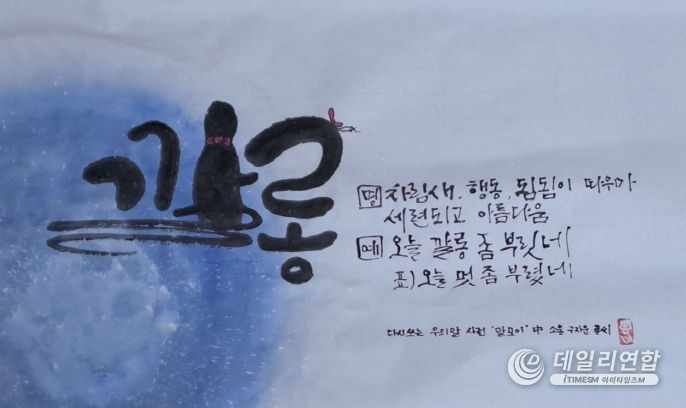 깔롱
명 차림새, 행동, 됨됨이 따위가
세련되고 아름다움
예 오늘 깔롱 좀 부릿네
표) 오늘 멋 좀 부렸네
다시쓰는 우리말 사전 '말모이' 中 소홍 구자운 쓰다
데일리연합
iTIMESM 아이타임즈M